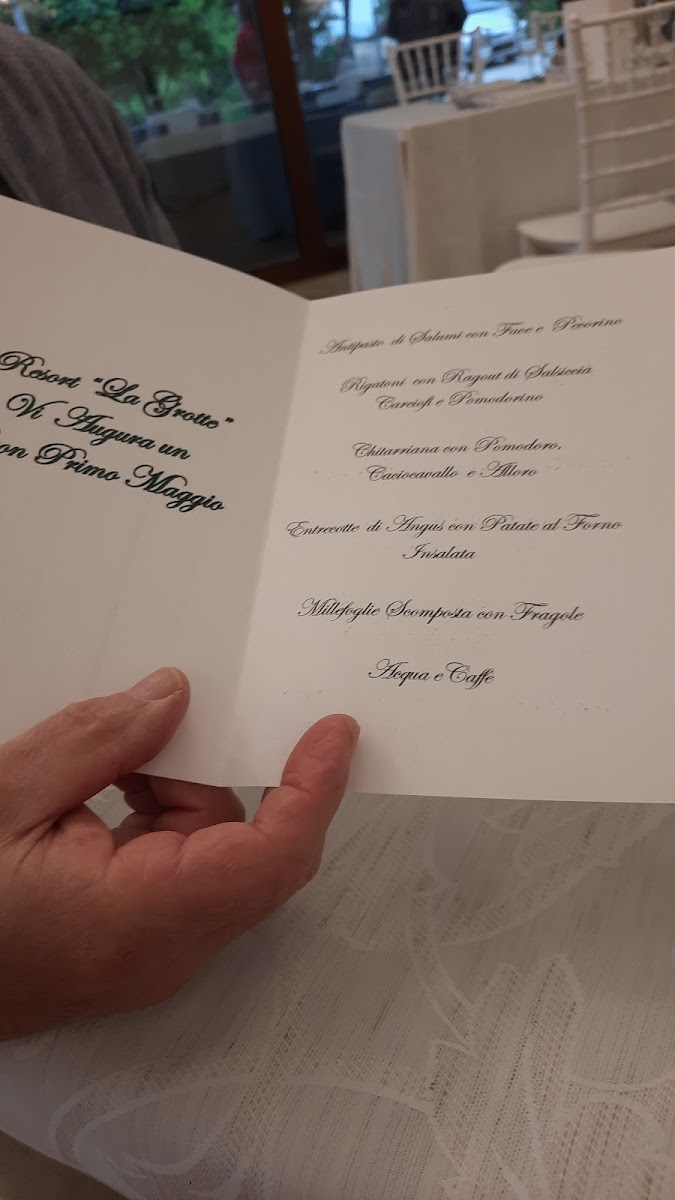 Resort "La Grotte"
Vi Augura un
on Primo Maggio
Antipasto di Salumi con Fave e Pecorino
Rigatoni con Ragout di Salsiccia
Carciofi e Pomodorino
Chitarriana con Pomodoro,
Caciocavallo e Alloro
Entrecotte di Angus con Patate al Forno
Insalata
Millefoglie Scomposta con Fragole
Acqua e Caffè